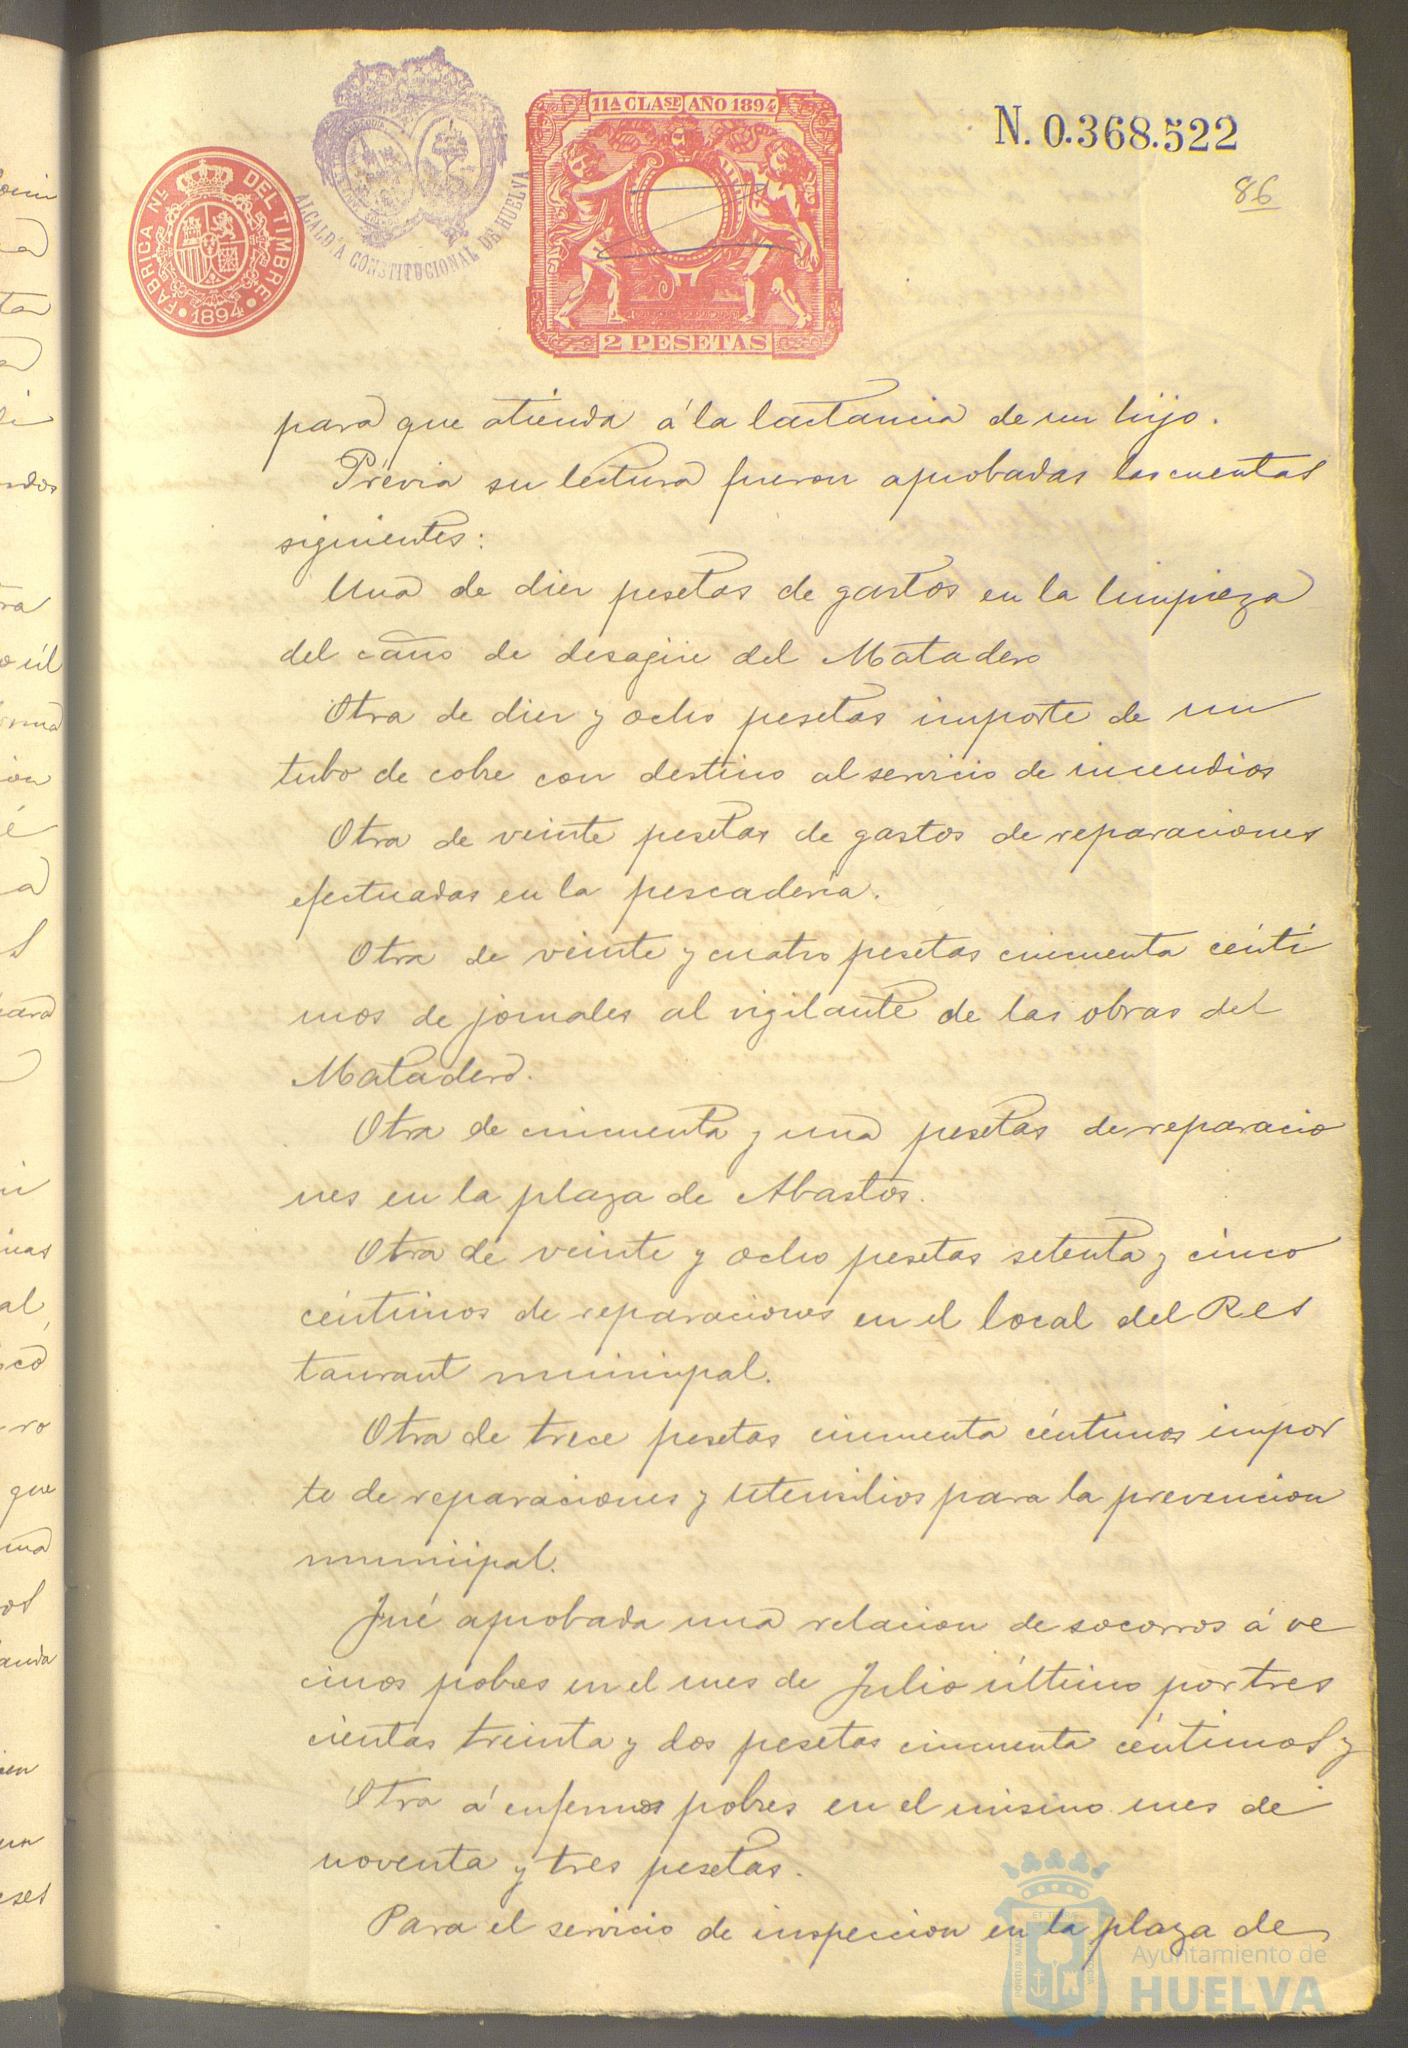 11ª CLASE AÑO 1894
N. 0.368.522
86
FABRICA Nˡ. DEL TIMBRE
1894
ALCALDÍA CONSTITUCIONAL DE HUELVA
2 PESETAS
para que atienda á la lactancia de un hijo.
Prévia su lectura fueron aprobadas las cuentas
siguientes:
Una de diez pesetas de gastos en la limpieza
del caño de desagüe del Matadero
Otra de diez y ocho pesetas importe de un
tubo de cobre con destino al servicio de incendios
Otra de veinte pesetas de gastos de reparaciones
efectuadas en la pescadería.
Otra de veinte y cuatro pesetas cincuenta cénti
mos de jornales al vigilante de las obras del
Matadero.
Otra de cincuenta y una pesetas de reparacio
nes en la plaza de Abastos.
Otra de veinte y ocho pesetas setenta y cinco
céntimos de reparaciones en el local del Res
taurant municipal.
Otra de trece pesetas cincuenta céntimos impor
te de reparaciones y utensilios para la prevencion
municipal.
Fué aprobada una relacion de socorros á ve
cinos pobres en el mes de Julio último por tres
cientas treinta y dos pesetas cincuenta céntimos y
Otra á enfermos pobres en el mismo mes de
noventa y tres pesetas.
Para el servicio de inspeccion en la plaza de
Ayuntamiento de
HUELVA